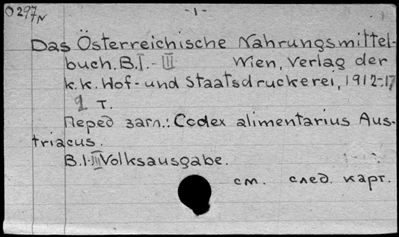 O 297/N
- 1 -
Das Österreichische Nahrungsmittel-
buch. B. I. - III Wien, Verlag der
k.k. Hof- und Staatsdruckerei, 1912-17
т.
Перед загл.: Codex alimentarius Aus-
triacus.
B. I-III Volksausgabe.
см. след. карт.